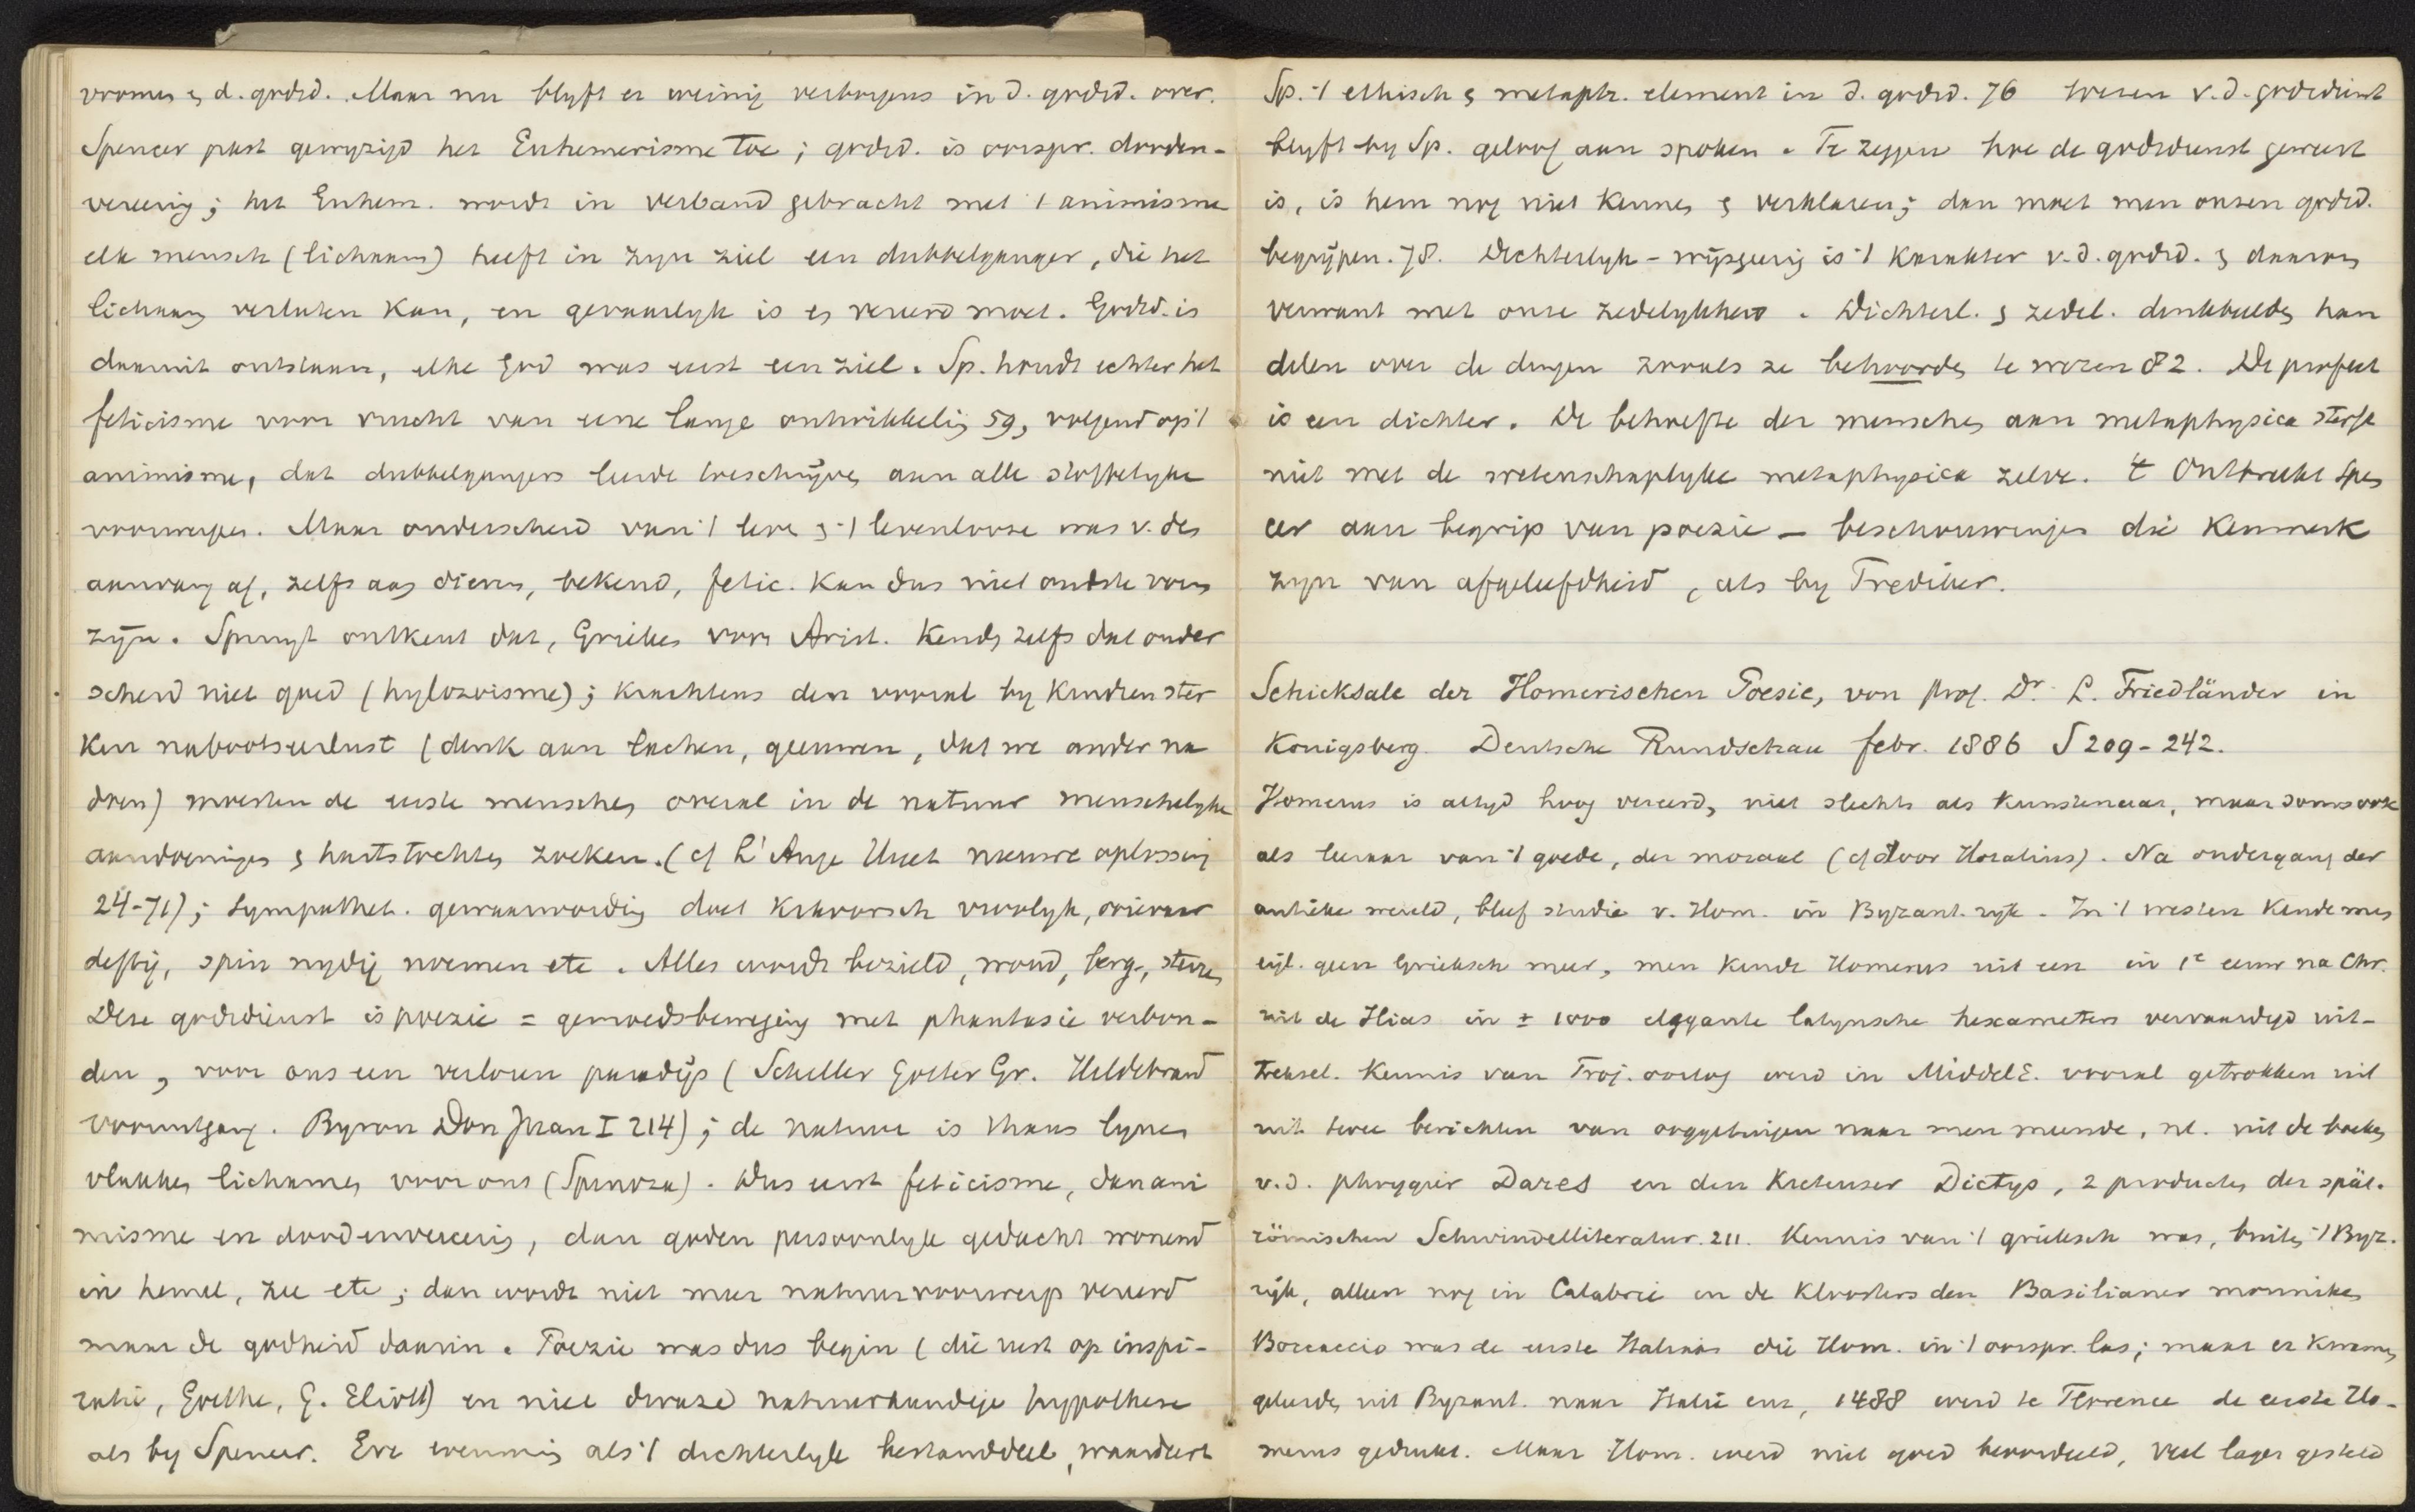 vromen en d. godsd. Maar nu blyft er weinig verborgens in d. godsd. over.
Spencer past gewyzigd het Euhemerisme toe; godsd. is oorspr. dooden-
vereerig; het Euhem. wordt in verband gebracht met 't animisme
elk mensch (lichaam) heeft in zyn ziel een dubbelganger, die het
lichaam verlaten kan, en gevaarlyk is en vereerd moet. Godsd. is
daaruit ontstaan, elke God was eerst een ziel. Sp. houdt echter het
feticisme voor vrucht van eene lange ontwikkelig 59, volgend op 't
animisme, dat dubbelgangers leerde toeschrijven aan alle stoffelyke
voorwerpen. Maar onderscheid van 't leve en 't levenlooze was v. den
aanvang af, zelfs aan dieren, bekend, fetic. kan dus niet oudste vorm
zijn. Spruyt ontkent dat, Grieken voor Arist. kenden zelfs dat onder
scheid niet goed (hylozoisme); krachtens den vooral by kinderen ster
ken nabootserlust (denk aan lachen, geeuwen, dat we ander na
doen) moesten de eerste menschen overal in de natuur menschelyke
aandoeningen en hartstochten zoeken. (cf L'Ange Huet nieuwe oplossing
24-71); sympathet. gewaarwordig doet kikvorsch vroolyk, ooievaar
deftig, spin nydig noemen etc. Alles wordt bezield, woud, berg, sterren
Deze godsdienst is poezie = gemoedsbeweging met phantasie verbon-
den, voor ons een verloren paradijs (Schiller Götter Gr. Hildebrand
vooruitgang. Byron Don Juan I 214); de natuur is thans lynen
vlakken lichamen voor ons (Spinoza). Dus eerst feticisme, dan ani
misme en doodenvereerig, dan goden persoonlyk gedacht wonend
in hemel, zee etc; dan wordt niet meer natuurvoorwerp vereerd
maar de godheid daarin. Poezie was dus begin (die rust op inspi-
ratie, Goethe, G. Eliott) en niet dwaze natuurkundige hypothese
als by Spencer. Evenmin als 't dichterlyk bestanddeel, waardeert
Sp. 't ethisch en metaph. element in d. godsd. 76 Wezen v.d. godsdienst
blyft by Sp. geloof aan spoken. Te zeggen hoe de godsdienst geweest
is, is hem nog niet kennen en verklaren; dan moet men onzen godsd.
begrijpen. 78. Dichterlyk-wijsgeerig is 't karakter v.d. godsd. en daarom
verwant met onze zedelykheid. Dichterl. en zedel. denkbeelden han
delen over de dingen zooals ze behoorden te wezen 82. De profeet
is een dichter. De behoefte der menschen aan metaphysica sterft
niet met de wetenschaplyke metaphysica zelve. 't Ontbreekt Spen
cer aan begrip van poezie - beschouwingen die kenmerk
zyn van afgeleefdheid, als by Trediker.
Schicksale der Homerischen Poesie, von Prof. Dr. L. Friedländer in
Konigsberg. Deutsche Rundschau febr. 1886 S 209-242.
Homerus is altyd hoog vereerd, niet slechts als kunstenaar, maar soms ook
als leeraar van 't goede, der moraal (cf door Horatius). Na ondergang der
antieke wereld, bleef studie v. Hom. in Byzant. ryk. In 't westen kende men
eigl. geen Grieksch meer, men kende Homerus uit een in 1e eeuw na Chr.
uit de Ilias in ± 1000 elegante latynsche hexameters vervaardigd uit-
treksel. Kennis van Troj. oorlog werd in MiddelE. vooral getrokken uit
uit twee berichten van ooggetuigen naar men meende, nl. uit de boeken
v.d. phrygier Dares en den Kretenser Dictys, 2 producten der spät-
römischen Schwindelliteratur. 211. Kennis van 't grieksch was, buiten 't Byz.
rijk, alleen nog in Calabrië in de kloosters den Basilianer monniken
Boccaccio was de eerste Italiaan die Hom. in 't oorspr. las; maar er kwamen
geleerden uit Byzant. naar Italië enz, 1488 werd te Florence de eerste Ho-
merus gedrukt. Maar Hom. werd niet goed beoordeeld, veel lager gesteld